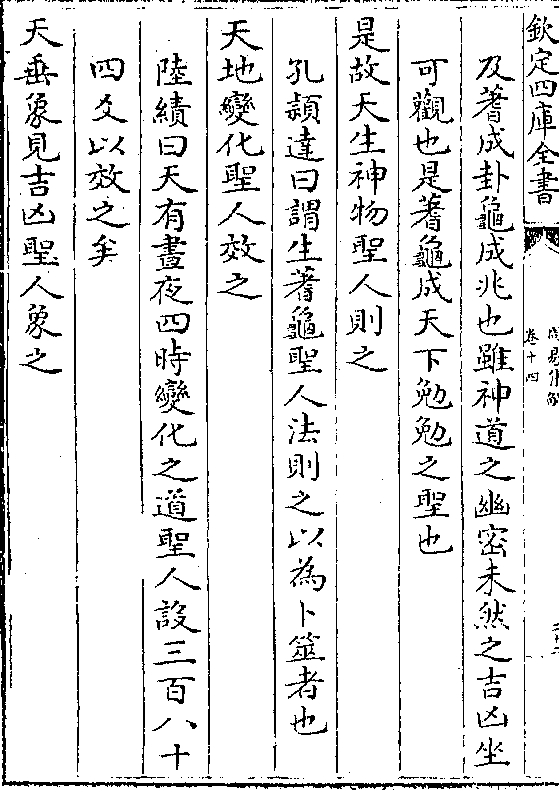 欽定四庫全書
卷十四
及蓍成卦龜成兆也雖神道之幽密未然之吉凶坐
可觀也是蓍龜成天下勉勉之聖也
是故天生神物聖人則之
孔穎達曰謂生蓍龜聖人法則之以為卜筮者也
天地變化聖人效之
陸績曰天有晝夜四時變化之道聖人設三百八十
四爻以效之矣
天垂象見吉凶聖人象之